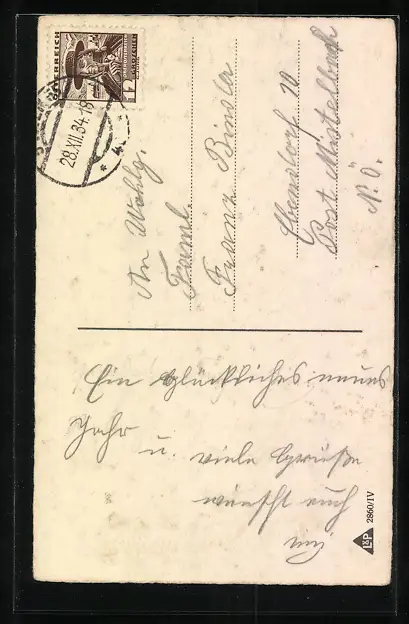 ÖSTERREICH
12
28.XII.34-18
An Wohlg.
Faml.
Franz Binder
Ebendorf 70
Post Mistelbach
N. Ö.
Ein glückliches neues
Jahr u. viele Grüße
wünscht euch
L&P 2860/IV